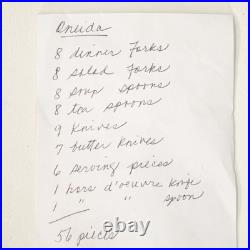 Oneida
8 dinner forks
8 salad forks
8 soup spoons
8 tea spoons
9 knives
7 butter knives
6 serving pieces
1 hors d'oeuvre knife
1 " " spoon
56 pieces